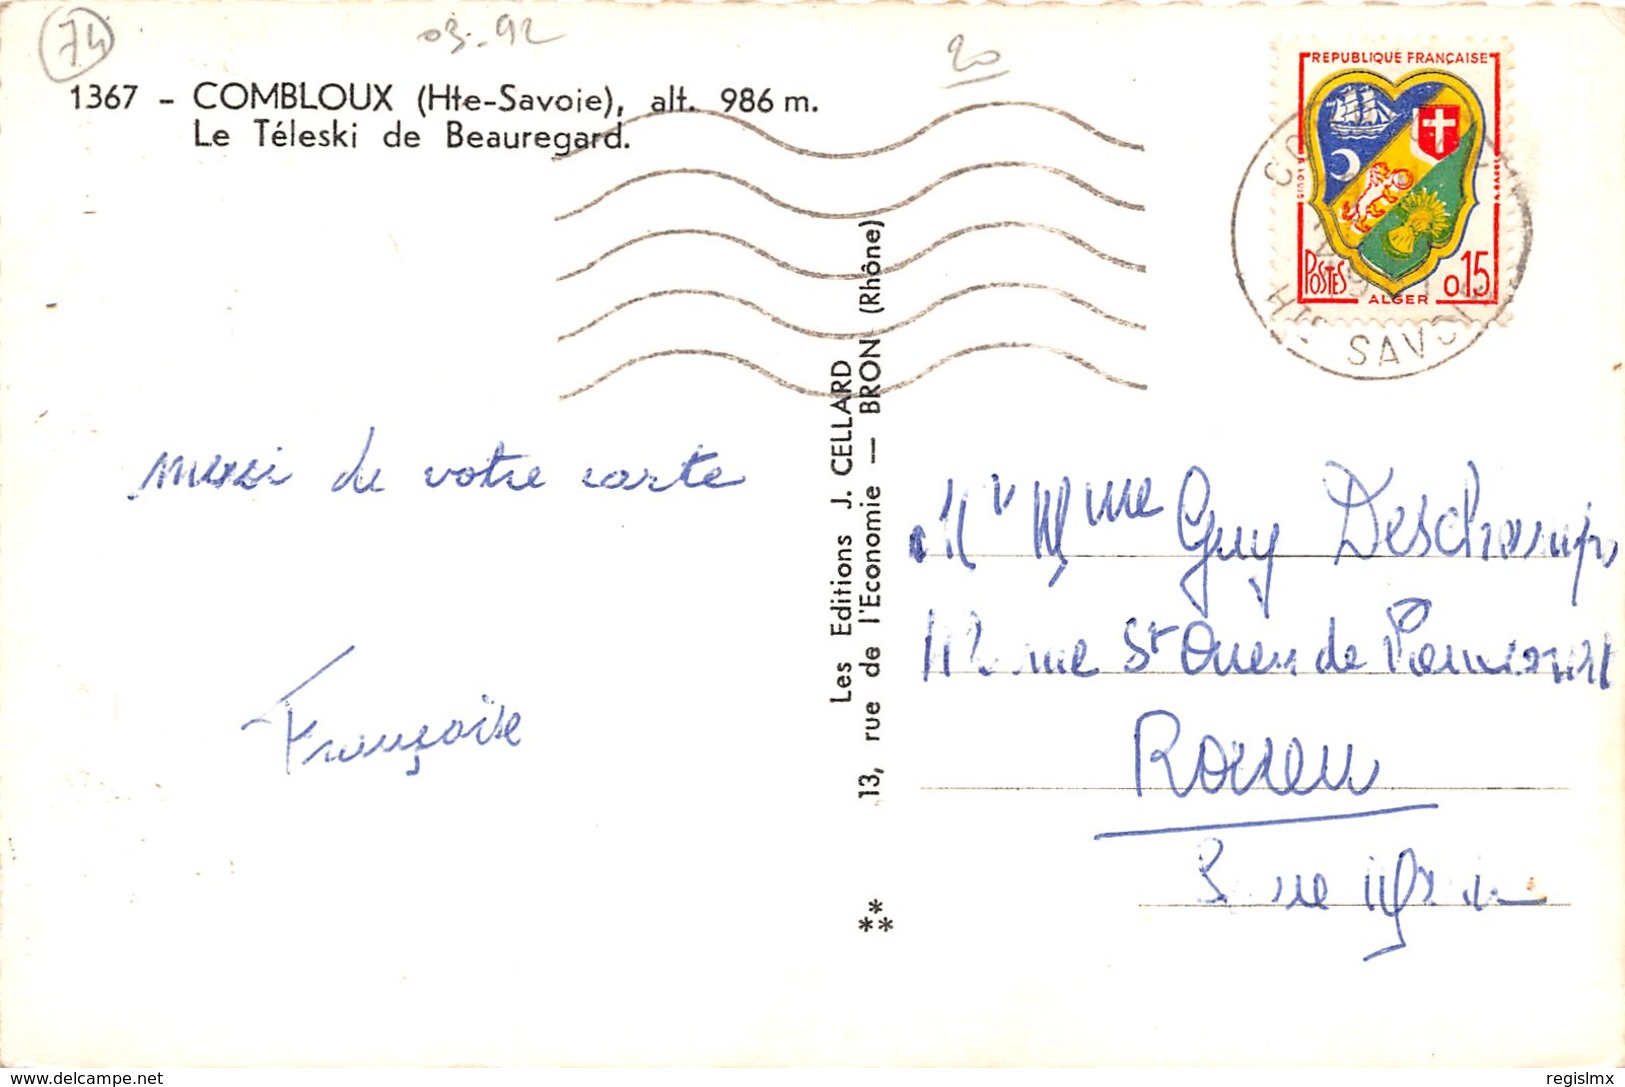 74
03-92
20
1367 - COMBLOUX (Hte-Savoie), alt. 986 m.
Le Téleski de Beauregard.
REPUBLIQUE FRANÇAISE
POSTES
ALGER
0,15
HTE SAVOIE
merci de votre carte
Françoise
Les Editions J. CELLARD
13, rue de l'Economie — BRON (Rhône)
Mr Mme Guy Deschamps
112 rue St Ouen de
Rouen
**
**
delcampe.net
regislmx